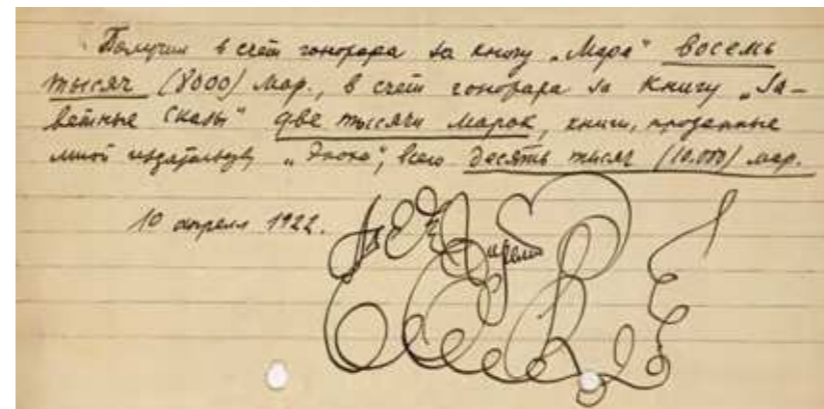 Получил в счёт гонорара за книгу „Мара“ восемь
тысяч (8000) мар., в счет гонорара за книгу „За-
ветные сказы“ две тысячи марок, книги, проданные
мной издательству „Эпоха“, всего десять тысяч (10.000) мар.
10 апреля 1922.